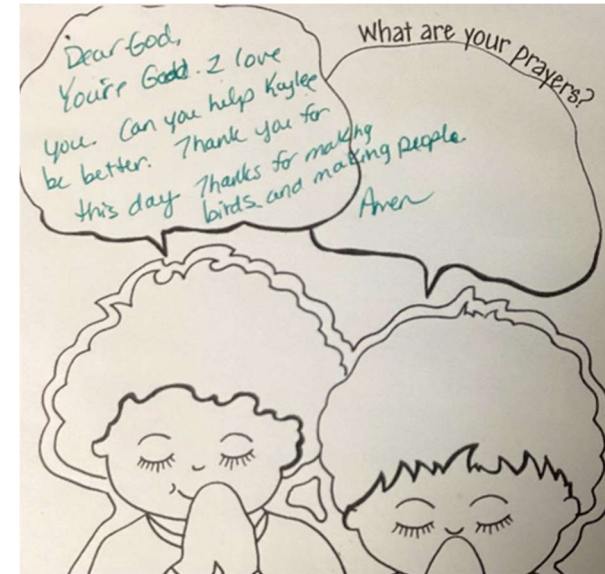 What are your prayers?
Dear God,
You're Good. I love
you. Can you help Kaylee
be better. Thank you for
this day Thanks for making
birds and making people
Amen